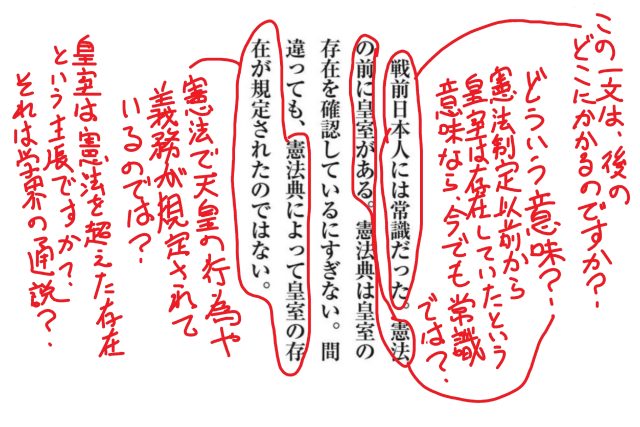 この一文は、後の
どこにかかるのですか？
どういう意味？
憲法制定以前から
皇室は存在していたという
意味なら、今でも常識
では？
戦前日本人には常識だった。憲法
の前に皇室がある。憲法典は皇室の
存在を確認しているにすぎない。間
違っても、憲法典によって皇室の存
在が規定されたのではない。
憲法で天皇の行為や
義務が規定されて
いるのでは？
皇室は憲法を超えた存在
という主張ですか？
それは学界の通説？